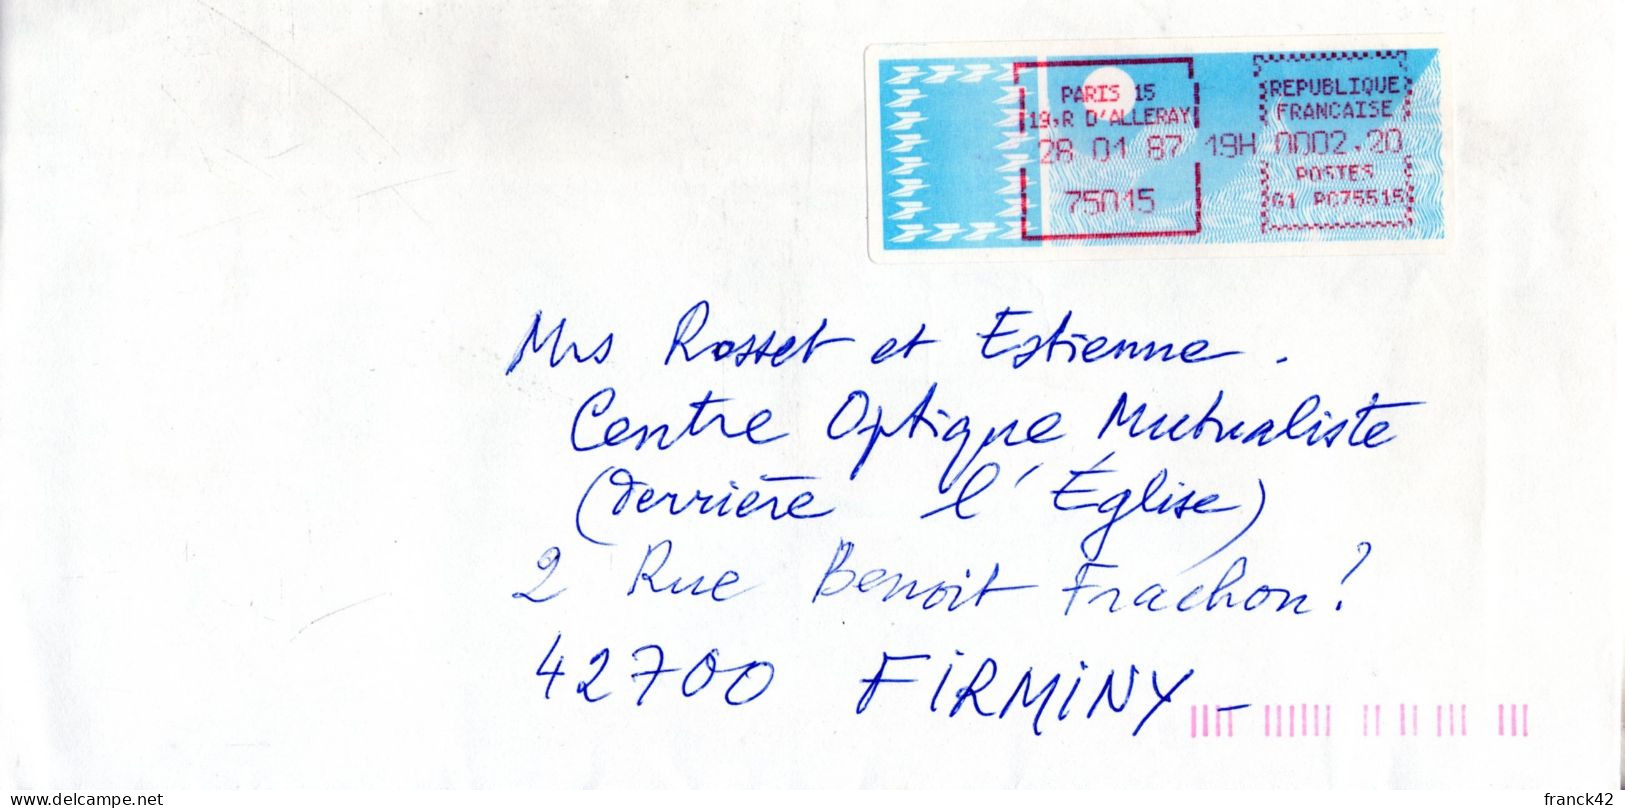 PARIS 15
19,R D'ALLERAY
28 01 87 19H 0002,20
75015
REPUBLIQUE
FRANCAISE
POSTES
G1 PC75515
Mrs Rosset et Estienne.
Centre Optique Mutualiste
(derrière l'Église)
2 Rue Benoit Frachon?
42700 FIRMINY -
delcampe.net
franck42